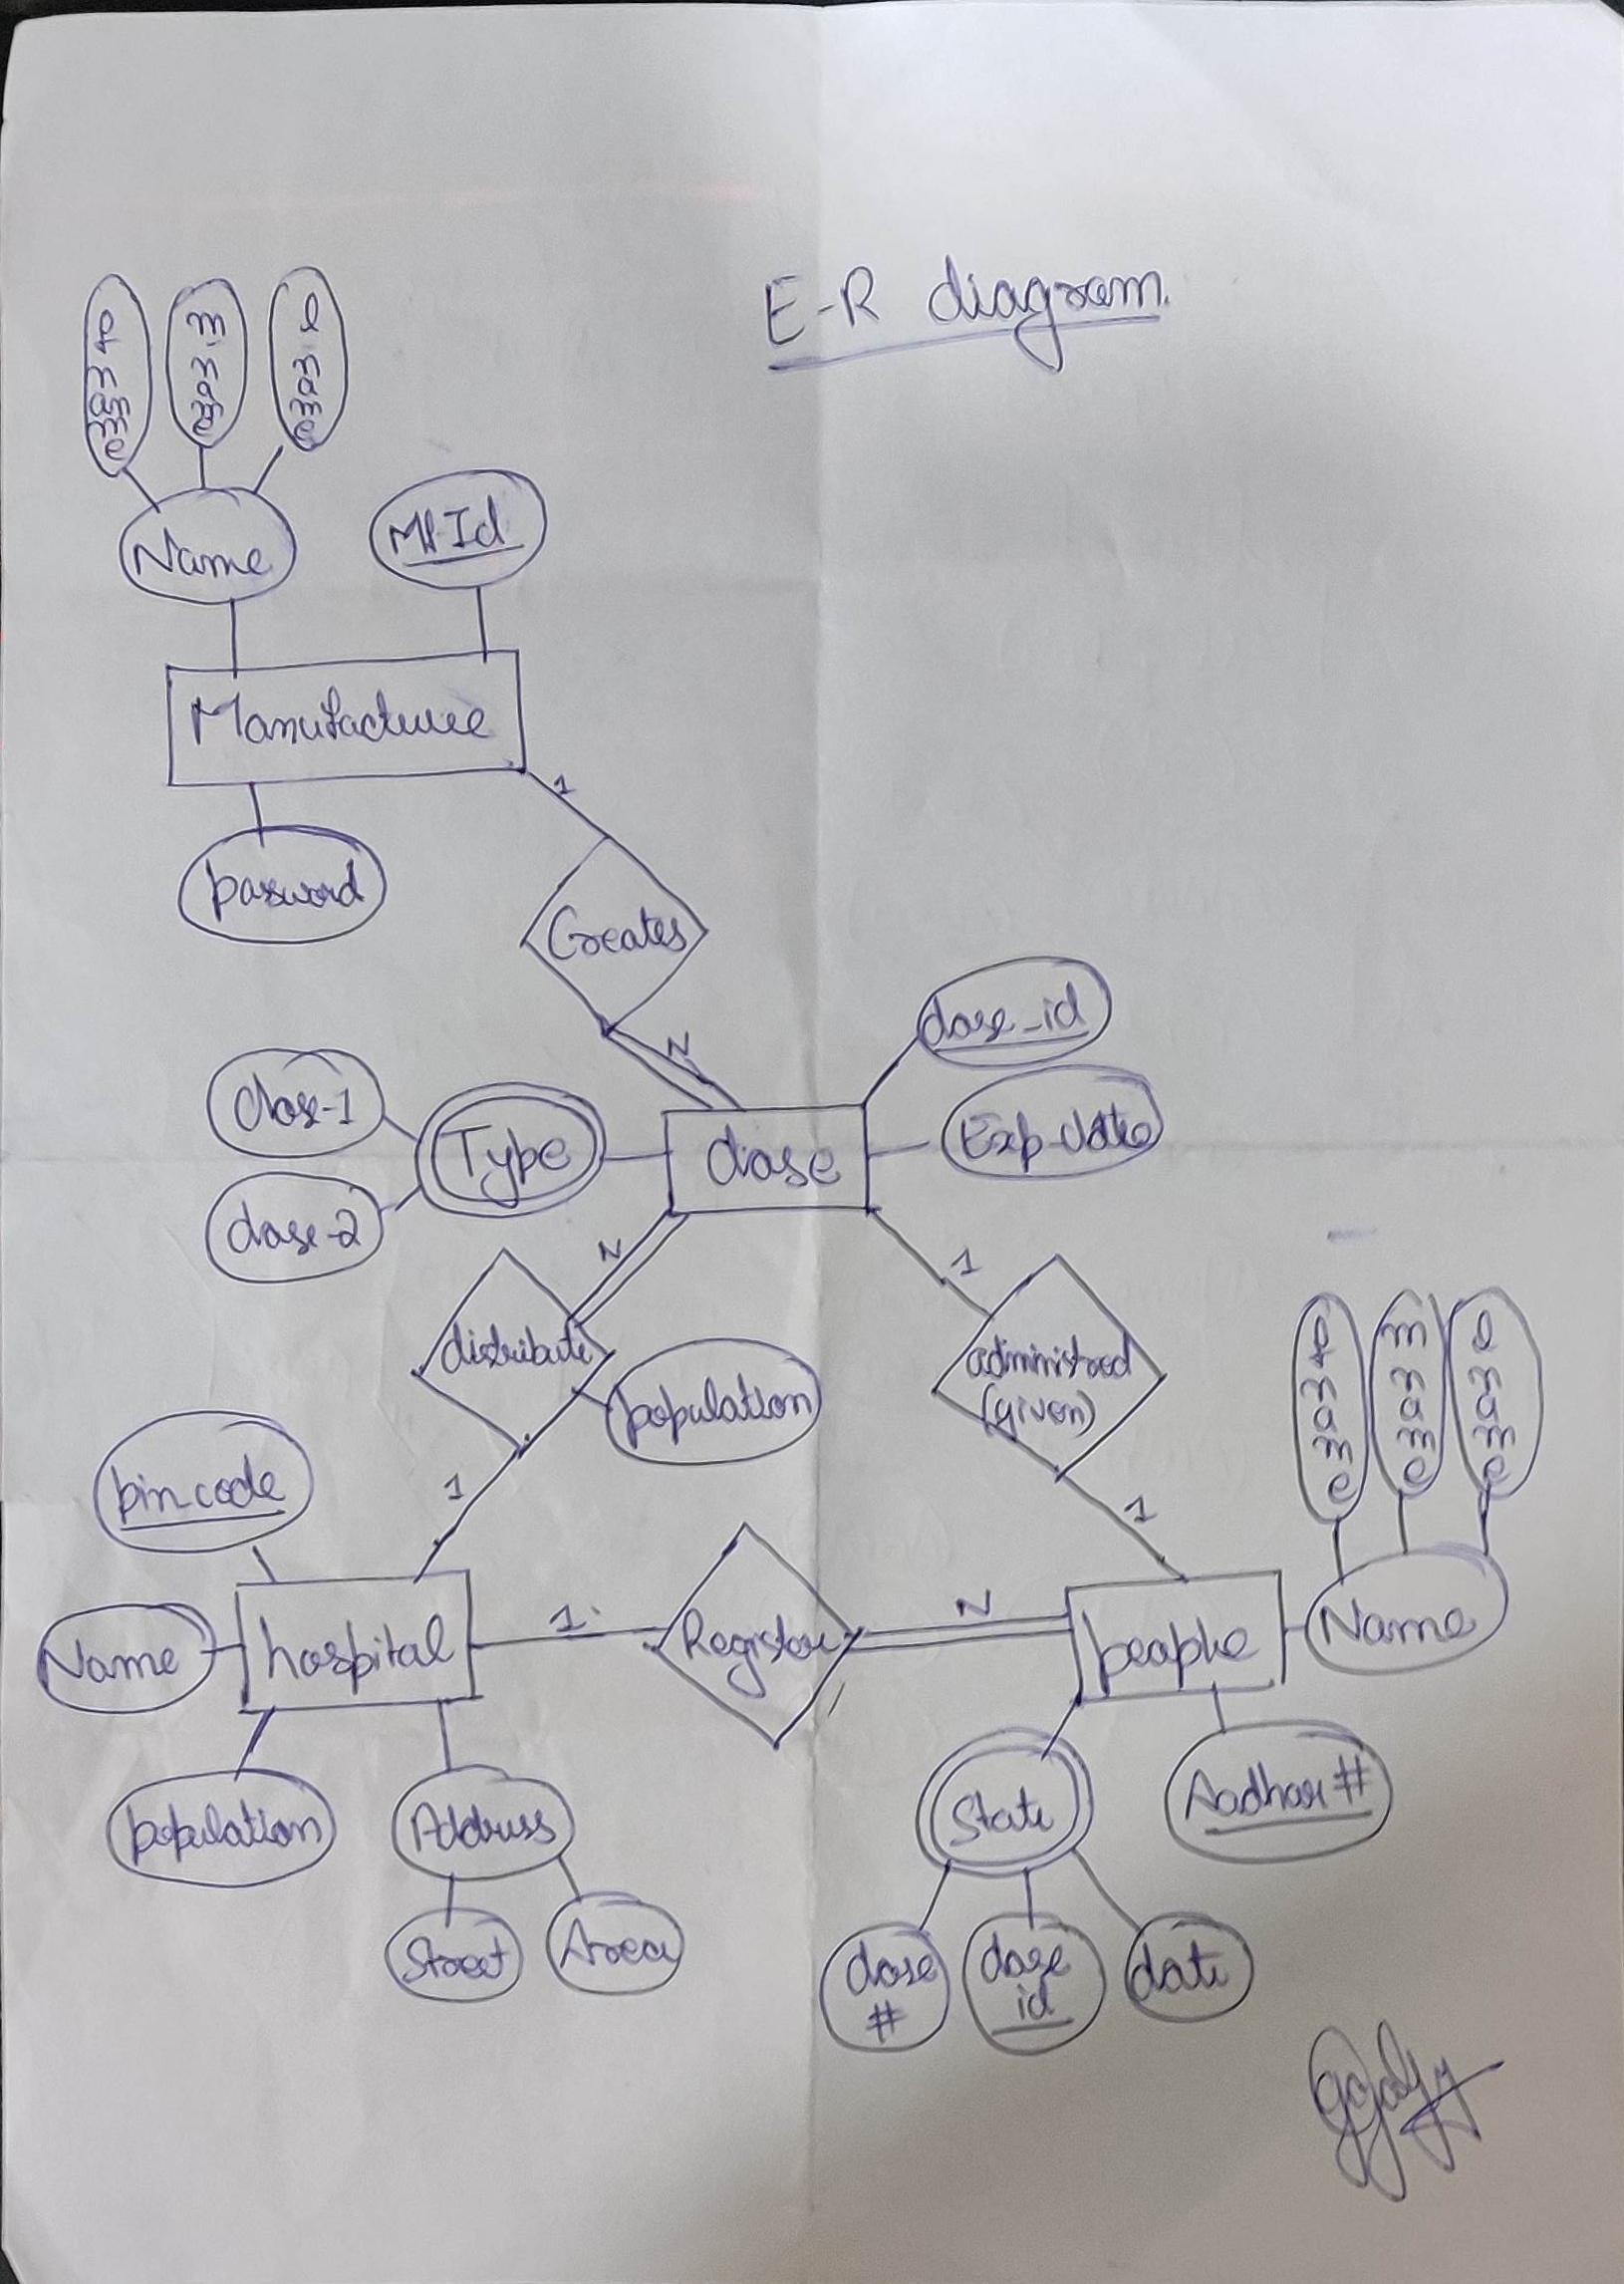 E-R diagram.
f name
m. name
l name
Name
M.Id
Manufacturee
password
1
Creates
N
dose_id
Exp-date
dose-1
Type
dose
dose-2
N
1
distribute
population
administred
(given)
f name
m name
l name
1
1
pincode
Name
hospital
1.
Register
N
people
Name
population
Address
State
Aadhar #
Street
Area
dose
#
dose
id
date